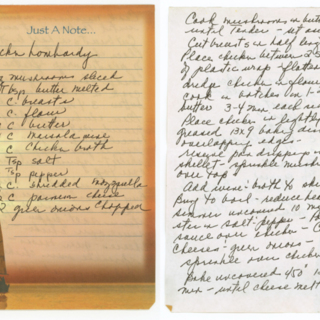 Just A Note...
Lombardy
mushrooms sliced
butter melted
C. breasts
C. flour
C butter
C Marsala wine
C Chicken broth
Tsp salt
Tsp pepper
C. shredded mozzarella
C parmesan cheese
green onions chopped
Cook mushrooms in butter
until tender - set
Cut breasts in half
Place chicken between 2
of plastic wrap - flatten
dredge chicken in flour
Cook in batches in 1-
butter 3-4 min each
Place chicken in lightly
greased 13x9 baking dish
overlapping edges -
reserve pan drippings in
skillet - sprinkle
over top
Add wine & broth to
Bring to boil - reduce heat
simmer uncovered 10
stir in salt & pepper -
sauce over chicken -
Cheeses - green onions -
sprinkle over chicken
bake uncovered 450° 1
min - until cheese